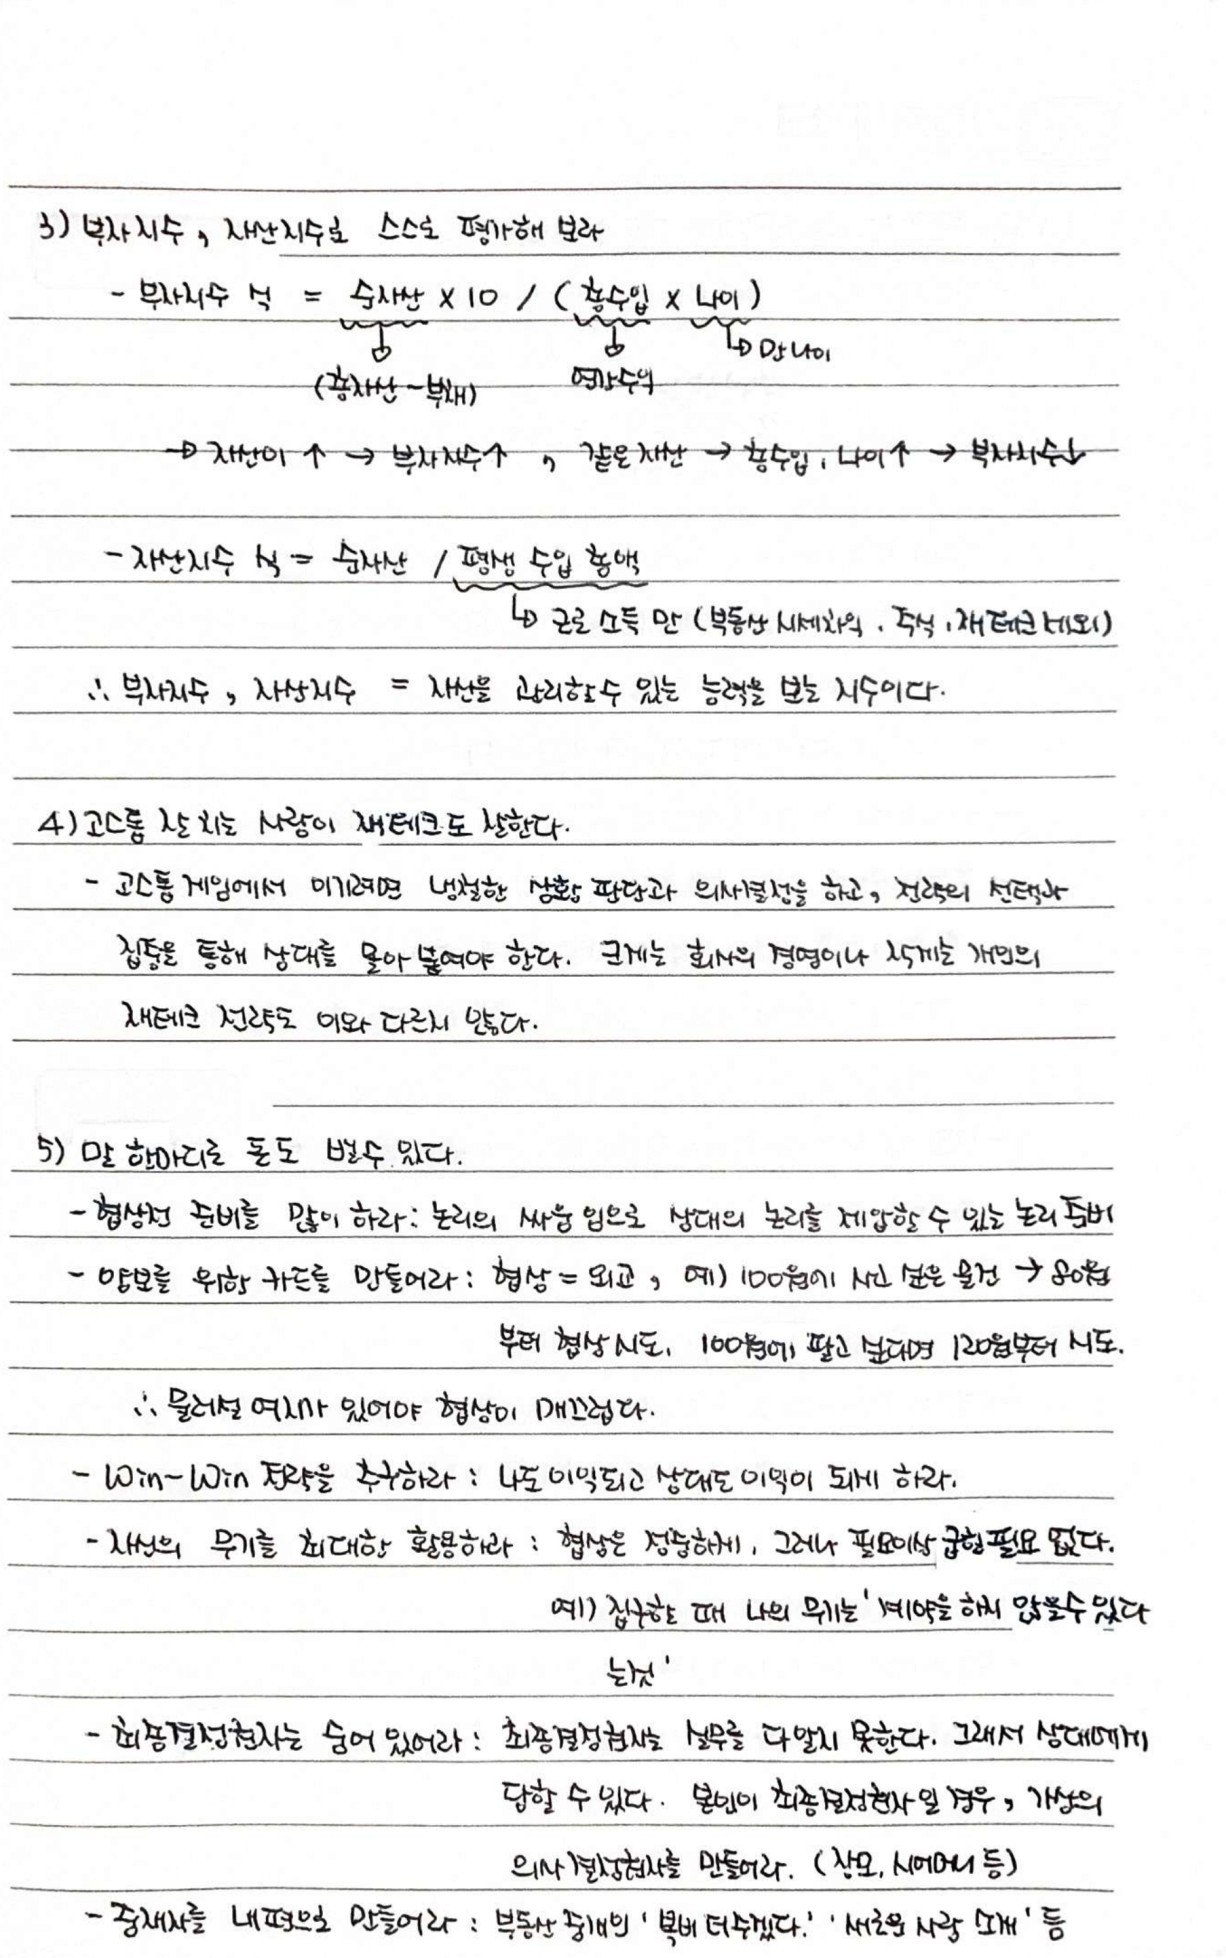 3) 부자지수, 재산지수로 스스로 평가해 보라
- 부자지수 식 = 순자산 × 10 / (총수입 × 나이)
(총자산-부채) 연간수익 → 만나이
→ 재산이 ↑ → 부자지수↑, 같은재산 → 총수입, 나이↑ → 부자지수↓
- 재산지수 식 = 순자산 / 평생 수입 총액
↳ 근로소득 만 (부동산 시세차익, 주식, 재테크 제외)
∴ 부자지수, 자산지수 = 자산을 관리할 수 있는 능력을 보는 지수이다.
4) 고스톱 잘 치는 사람이 재테크도 잘한다.
- 고스톱 게임에서 이기려면 냉철한 상황 판단과 의사결정을 하고, 전략의 선택과
집중을 통해 상대를 몰아 붙여야 한다. 크게는 회사의 경영이나 작게는 개인의
재테크 전략도 이와 다르지 않다.
5) 말 한마디로 돈도 벌수 있다.
- 협상전 준비를 많이 하라: 논리의 싸움 임으로 상대의 논리를 제압할 수 있는 논리 준비
- 양보를 위한 카드를 만들어라: 협상 = 외교, 예) 100원에 사고 싶은 물건 → 80원
부터 협상 시도. 100원에 팔고 싶다면 120원부터 시도.
∴ 물러설 여지가 있어야 협상이 매끄럽다.
- Win-Win 전략을 추구하라 : 나도 이익되고 상대도 이익이 되게 하라.
- 자신의 무기를 최대한 활용하라 : 협상은 정중하게, 그러나 필요이상 굽힐 필요 없다.
예) 집구할 때 나의 무기는 '계약을 하지 않을수 있다
는것'
- 최종결정권자는 숨어 있어라: 최종결정권자는 실무를 다 알지 못한다. 그래서 상대에게
당할 수 있다. 본인이 최종결정권자 일 경우, 가상의
의사결정권자를 만들어라. (장모, 시어머니 등)
- 중재자를 내편으로 만들어라 : 부동산 중개인 '복비 더주겠다.' '새로운 사람 소개' 등